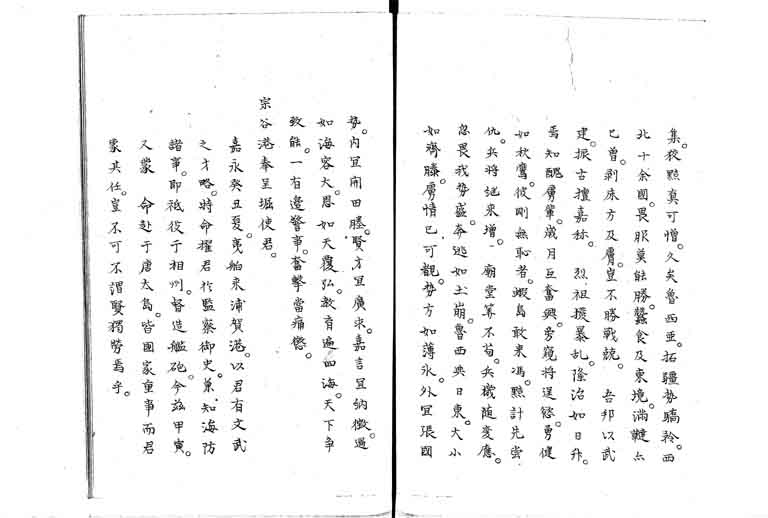 集。狡黠真可憎。久矣魯西亜。拓疆勢驕矜。西
北十余國。畏服莫能勝。蠶食及東境。満韃亦
已曽。剥床方及膚。豈不勝戦兢。 吾邦以武
建。振古擅嘉称。 烈祖撥暴乱。隆治如日升。
焉知醜虜輩。歳月互奮興。旁窺将逞慾。勇健
如秋鷹。彼剛無恥者。蝦島敢来馮。黠計先雪
仇。兵将従来増。 廟堂算不苟。兵機随変応。
忽畏我勢盛。奔逃如土崩。魯西与日東。大小
如齊滕。虜情已可観。勢方如薄氷。外宜張國
勢。内宜開田塍。賢才宜廣求。嘉言宜納徴。過
如海容大。恩如天覆弘。教育遍四海。天下争
致能。一有邊警事。奮撃當痛懲。
宗谷港奉呈堀使君。
嘉永癸丑夏。夷舶来浦賀港。以君有文武
之才略。将命擢君於監察御史。兼知海防
諸事。即祗役于相州。督造艦砲。今茲甲寅。
又蒙 命赴于唐太島。皆國家重事而君
蒙其任。豈不可不謂賢獨勞焉乎。